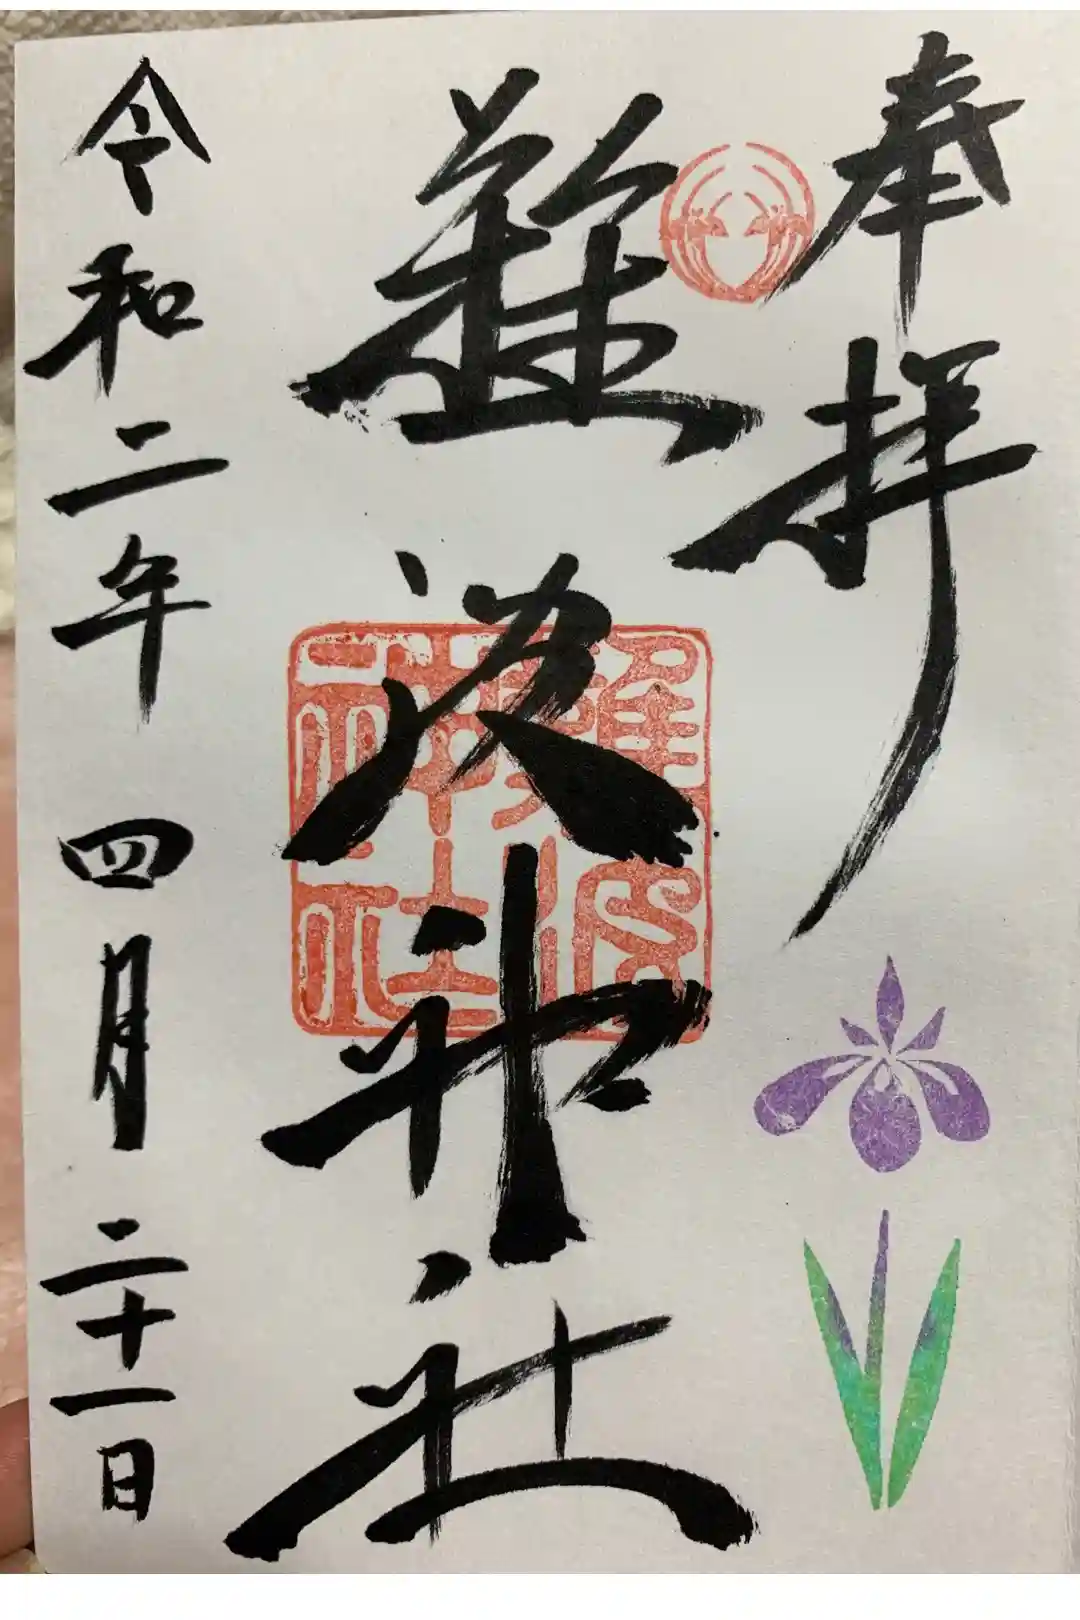 奉拝
難波神社
難波神社
令和二年四月二十一日